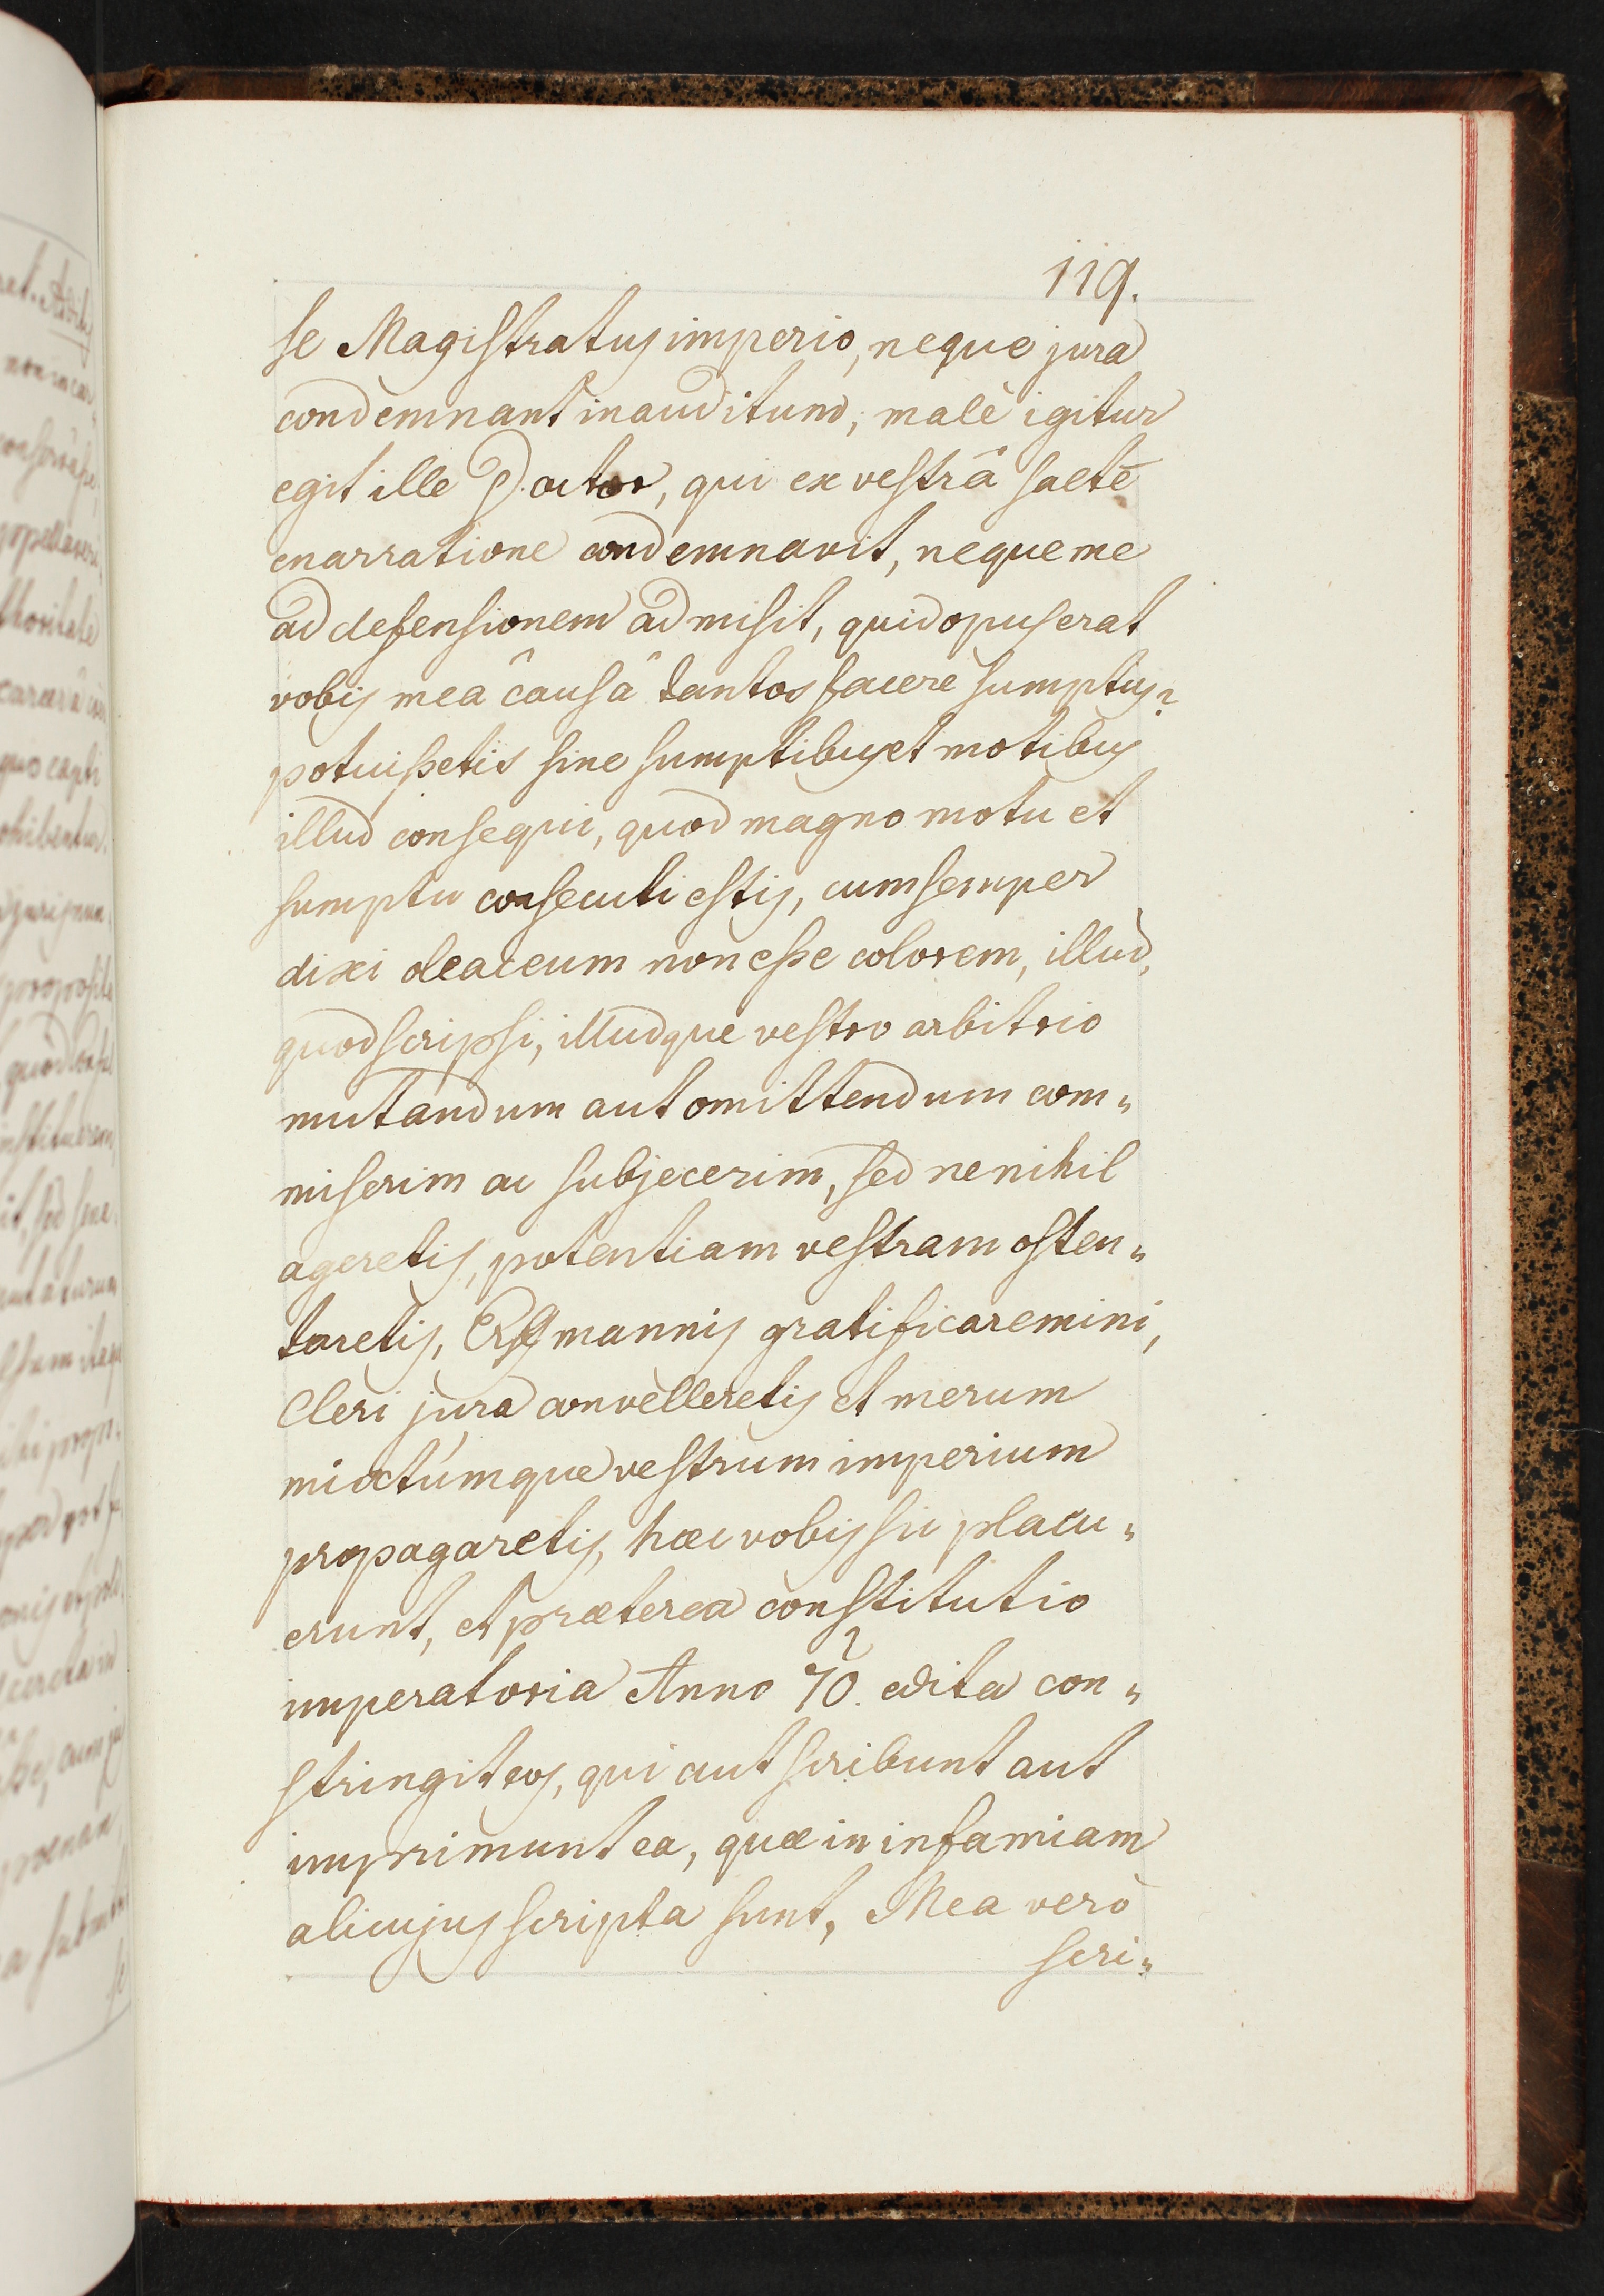 119.
se Magistratus imperio, neque jura
condemnant inauditum, malè igitur
egit ille Doctor, qui ex vestrâ saltē
enarratione condemnavit, neque me
ad defensionem admisit, quid opus erat
vobis meâ causâ tantos facere sumptus?
potuissetis sine sumptibus et motibus
illud consequi, quod magno motu et
sumptu consecuti estis, cum semper
dixi oleaceum non esse colorem, illud,
quod scripsi, illudque vestro arbitrio
mutandum aut omittendum com„
miserim ac subjecerim, sed ne nihil
ageretis, potentiam vestram osten„
taretis, mannis gratificaremini,
Cleri jura convelleretis et merum
mixtúmque vestrum imperium
propagaretis, hæc vobis sic placu„
erunt, et præterea constitutio
imperatoria Anno 70. edita con„
stringit eos, qui aut scribunt aut
imprimunt ea, quæ in infamiam
alicujus scripta sunt, Mea verò
scri„